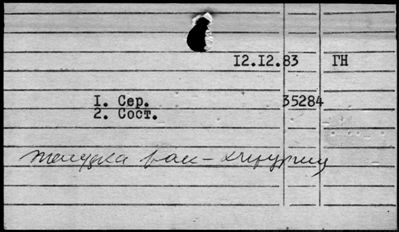 12.12.83 ГН
1. Сер. 35284
2. Сост.
желудка рак - хирургия